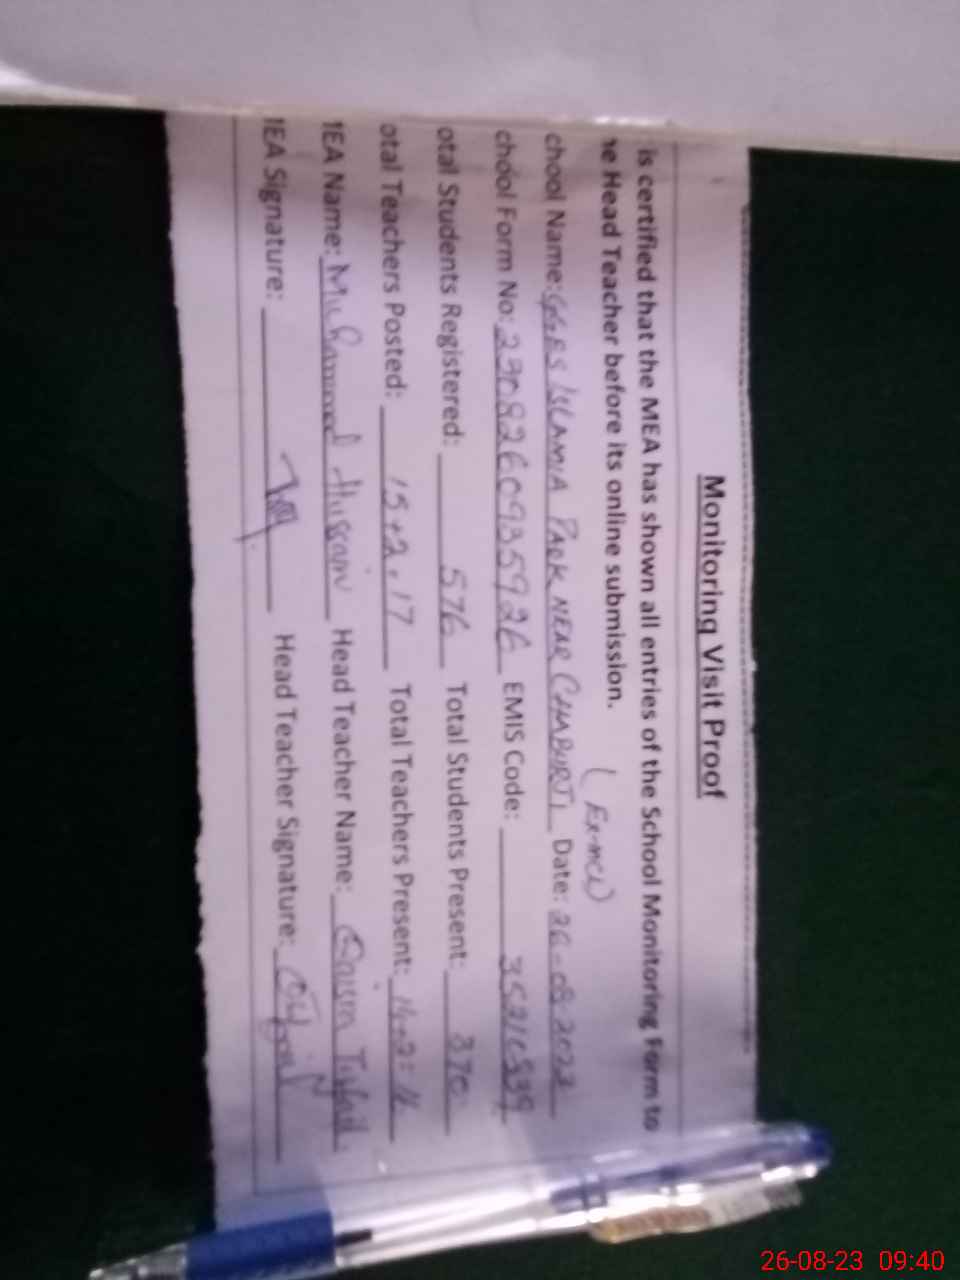 Monitoring Visit Proof
is certified that the MEA has shown all entries of the School Monitoring Form to
he Head Teacher before its online submission.
(Ex-MCL)
chool Name: GGES ISLAMIA PARK NEAR CHABURJI Date: 26-08-2023
chool Form No: EMIS Code:
otal Students Registered: 576 Total Students Present: 370
otal Teachers Posted: 15+2=17 Total Teachers Present:
MEA Name: Muhammad Hussain Head Teacher Name:
MEA Signature: Head Teacher Signature:
26-08-23 09:40